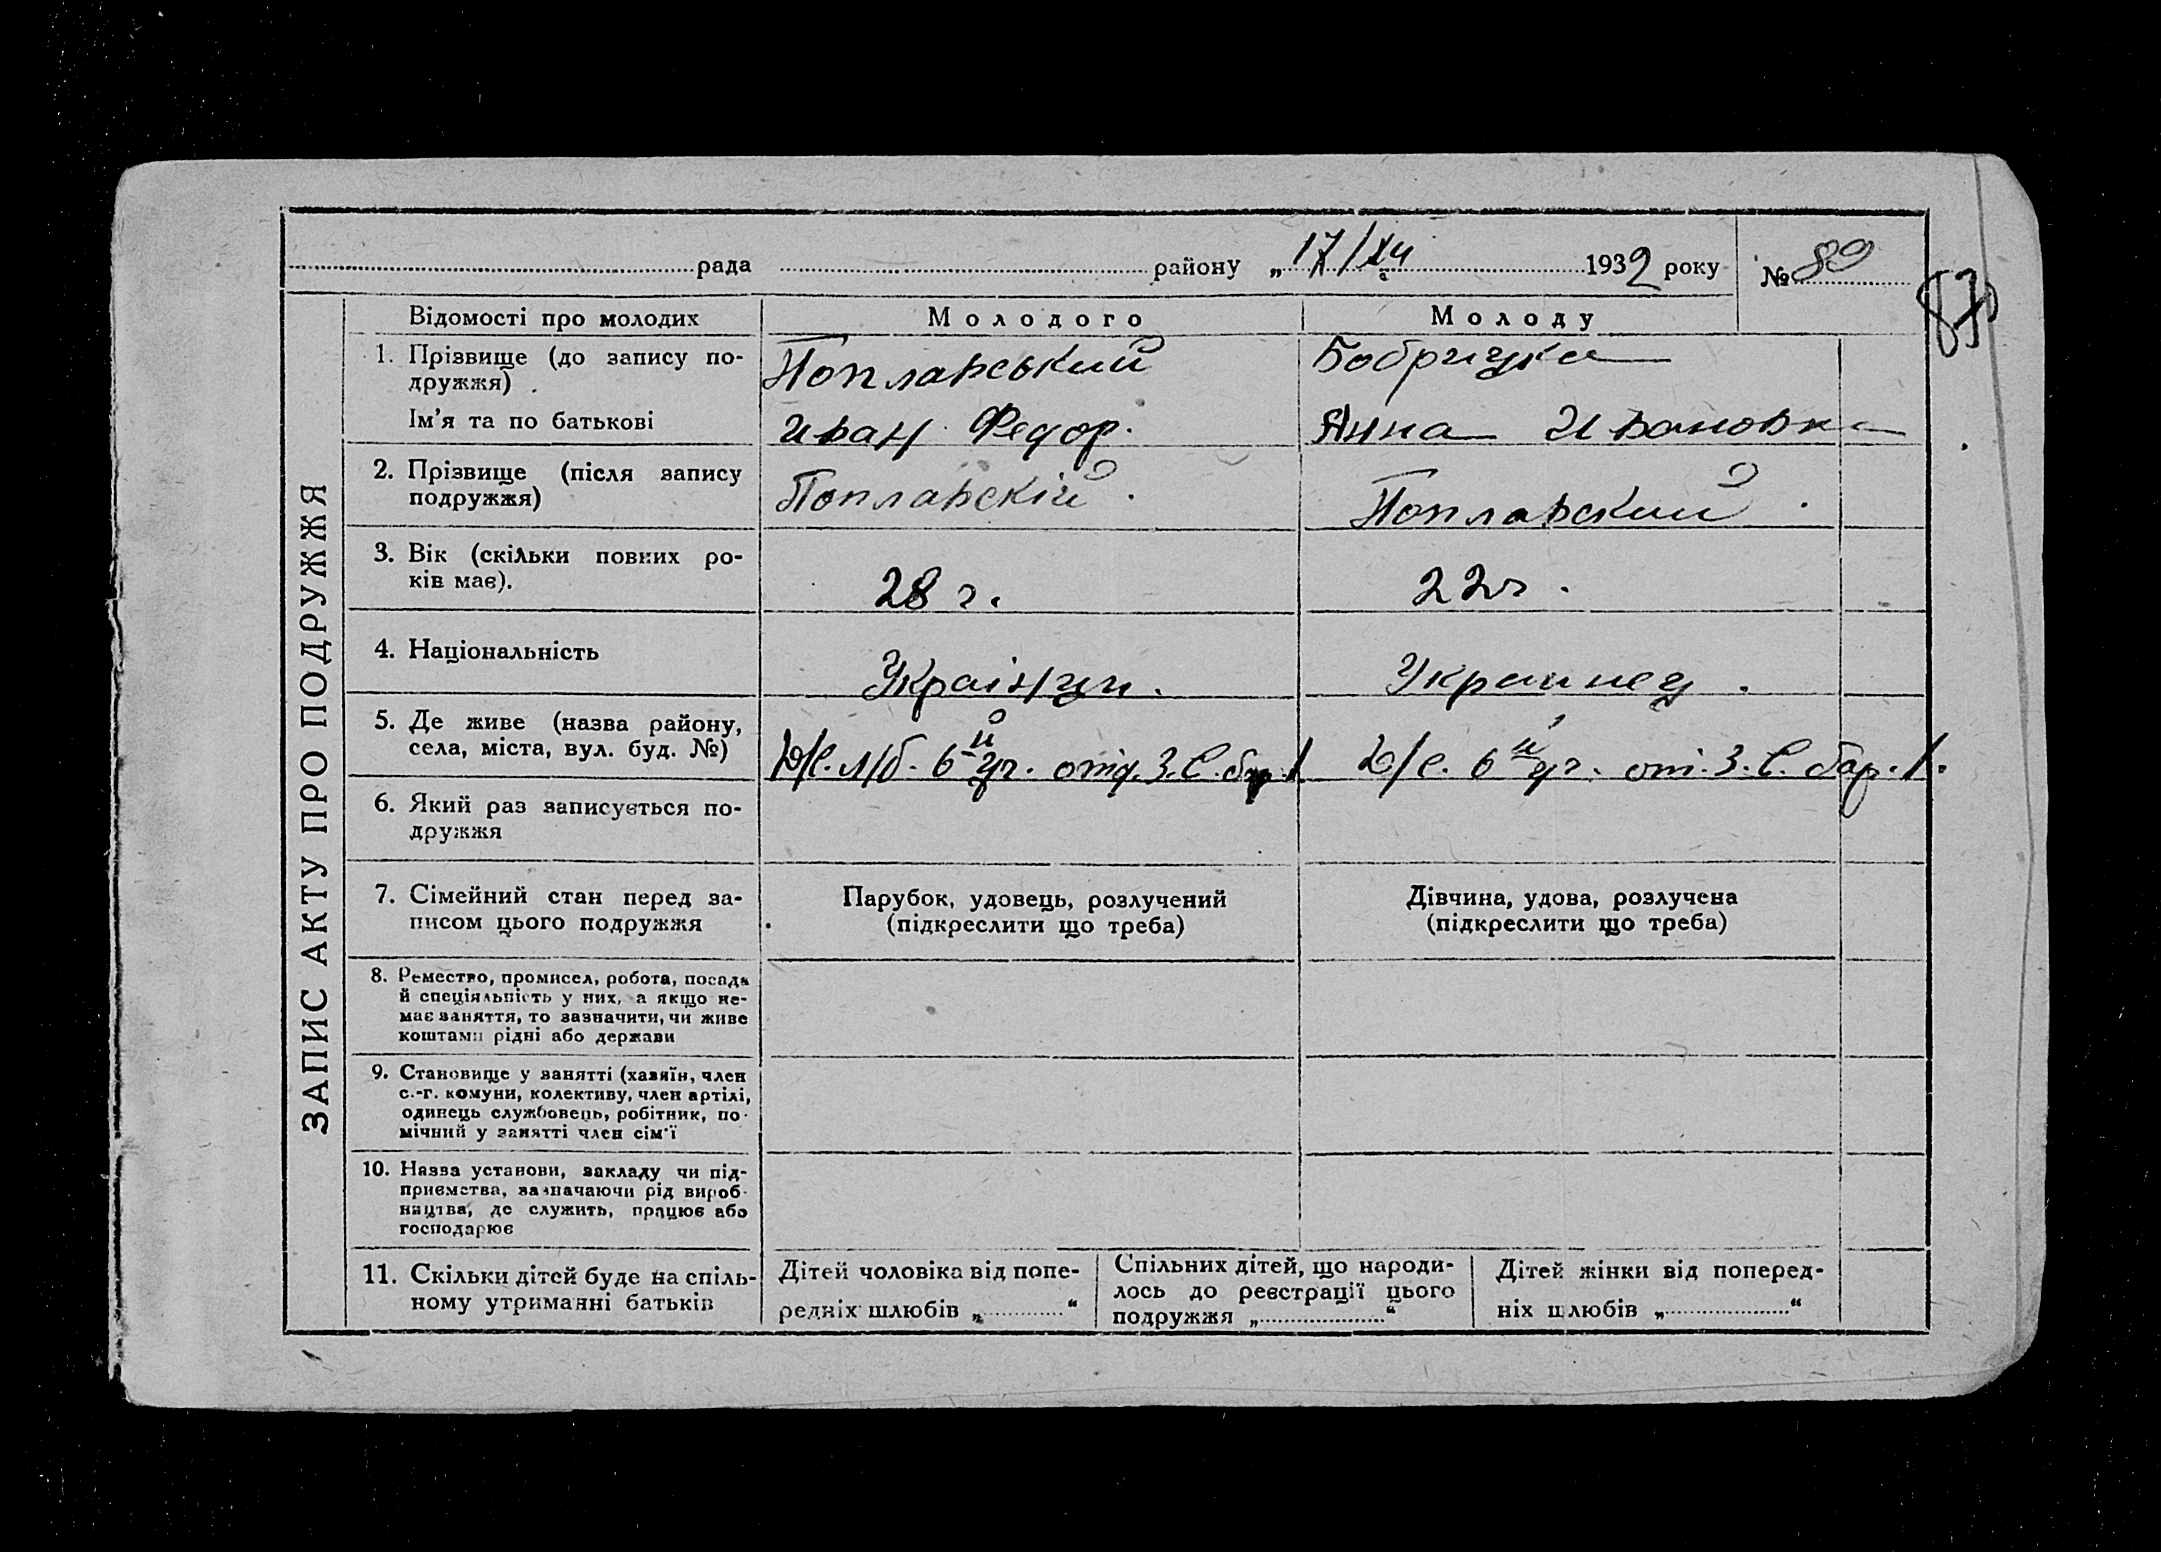 рада району „17/XII 1932 року №89
87
ЗАПИС АКТУ ПРО ПОДРУЖЖЯ
Відомості про молодих Молодого Молоду
1. Прізвище (до запису по-
дружжя)
Поплавський Бобрицка
Ім'я та по батькові Иван Федор. Анна Ивановна
2. Прізвище (після запису
подружжя)
Поплавскій. Поплавский.
3. Вік (скільки повних ро-
ків має).
28 г. 22 г.
4. Національність Українци. Украинец.
5. Де живе (назва району,
села, міста, вул. буд. №)
Д/С. Л/б. 6й уч. отд. З. С. бар. 1 Д/с. 6й уч. от. З. С. бар. 1.
6. Який раз записується по-
дружжя
7. Сімейний стан перед за-
писом цього подружжя
Парубок, удовець, розлучений
(підкреслити що треба)
Дівчина, удова, розлучена
(підкреслити що треба)
8. Ремество, промисел, робота, посада
й спеціяльність у них, а якщо не-
має заняття, то зазначити, чи живе
коштами рідні або держави
9. Становище у занятті (хазяїн, член
с.-г. комуни, колективу, член артілі,
одинець службовець, робітник, по-
мічний у занятті член сім'ї
10. Назва установи, закладу чи під-
приємства, зазначаючи рід вироб-
ництва, де служить, працює або
господарює
11. Скільки дітей буде на спіль-
ному утриманні батьків
Дітей чоловіка від попе-
редніх шлюбів „ “
Спільних дітей, що народи-
лось до реєстрації цього
подружжя „ “
Дітей жінки від поперед-
ніх шлюбів „ “